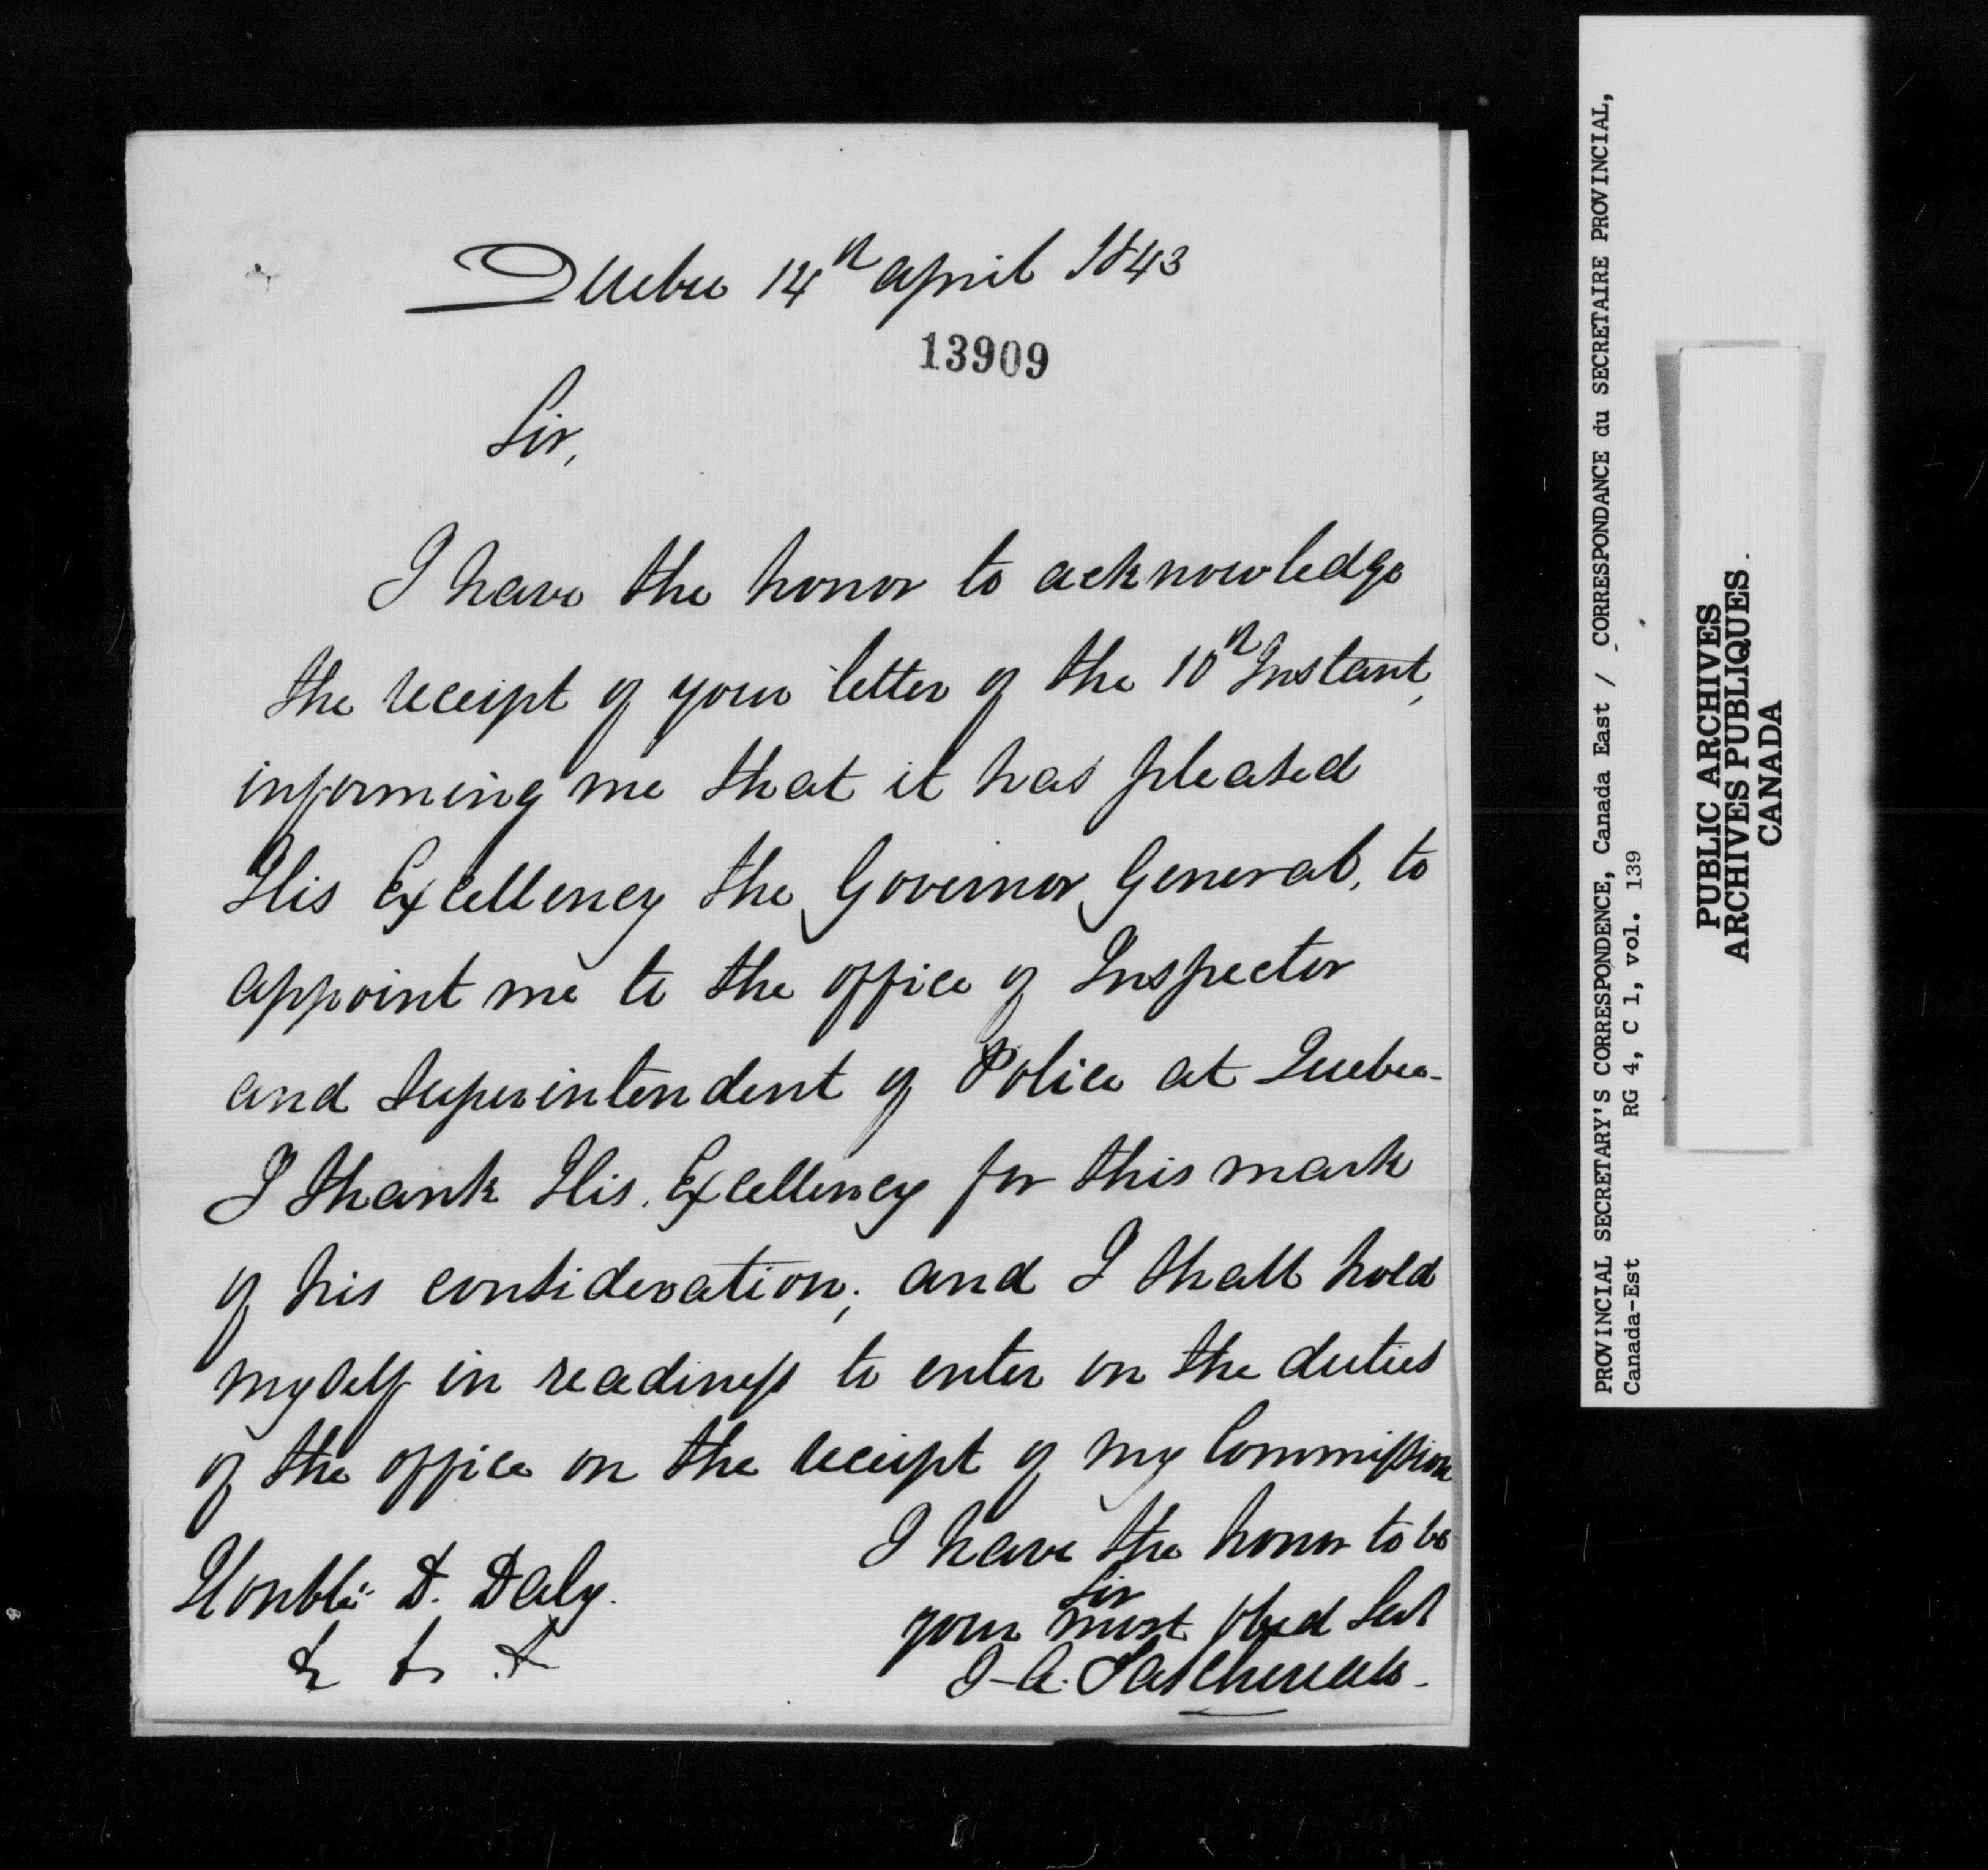 Quebec 14th april 1843
13909
Sir,
I have the honor to acknowledge
the receipt of your letter of the 10th Instant,
informing me that it has pleased
His Excellency the Governor General, to
appoint me to the office of Inspector
and Superintendent of Police at Quebec -
I thank His Excellency for this mark
of his consideration; and I shall hold
myself in readiness to enter on the duties
of the office on the receipt of my Commission
I have the honor to be
Sir
your most obed Sevt
J-A. Taschereau -
Honble. D. Daly.
& & &
PROVINCIAL SECRETARY'S CORRESPONDENCE, Canada East / CORRESPONDANCE du SECRETAIRE PROVINCIAL,
Canada-Est RG 4, C 1, vol. 139
PUBLIC ARCHIVES
ARCHIVES PUBLIQUES
CANADA